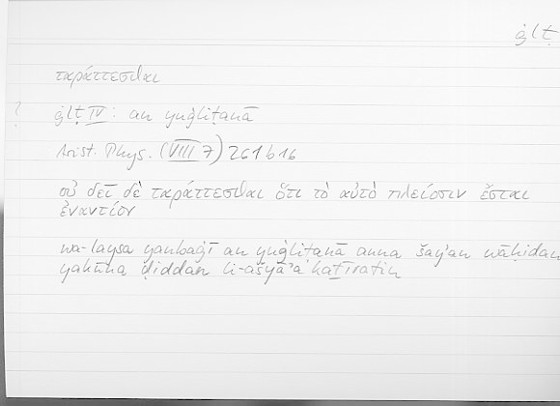 ġlṭ
ταράττεσθαι
ġlṭ IV: an yuġliṭanā
Arist. Phys. (VIII 7) 261b16
οὐ δεῖ δὲ ταράττεσθαι ὅτι τὸ αὐτὸ πλείοσιν ἔσται
ἐναντίον
wa-laysa yanbaġī an yuġliṭanā anna šayʾan wāḥidan
yakūna ḍiddan li-ašyāʾa kaṯīratin